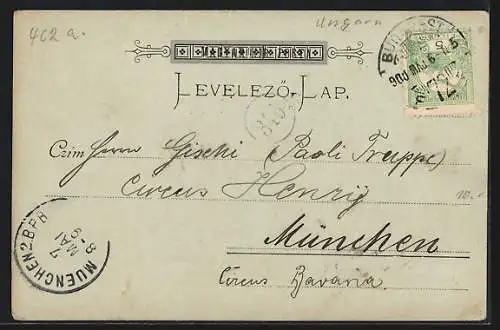 462 a.
Ungarn
LEVELEZŐ-LAP.
BUDAPEST
900 MÁJ 6
Czim Herrn Gischi (Paoli Truppe)
Circus Henrig
München
Circus Bavaria
MUENCHEN 2.B.P.
7
MAI